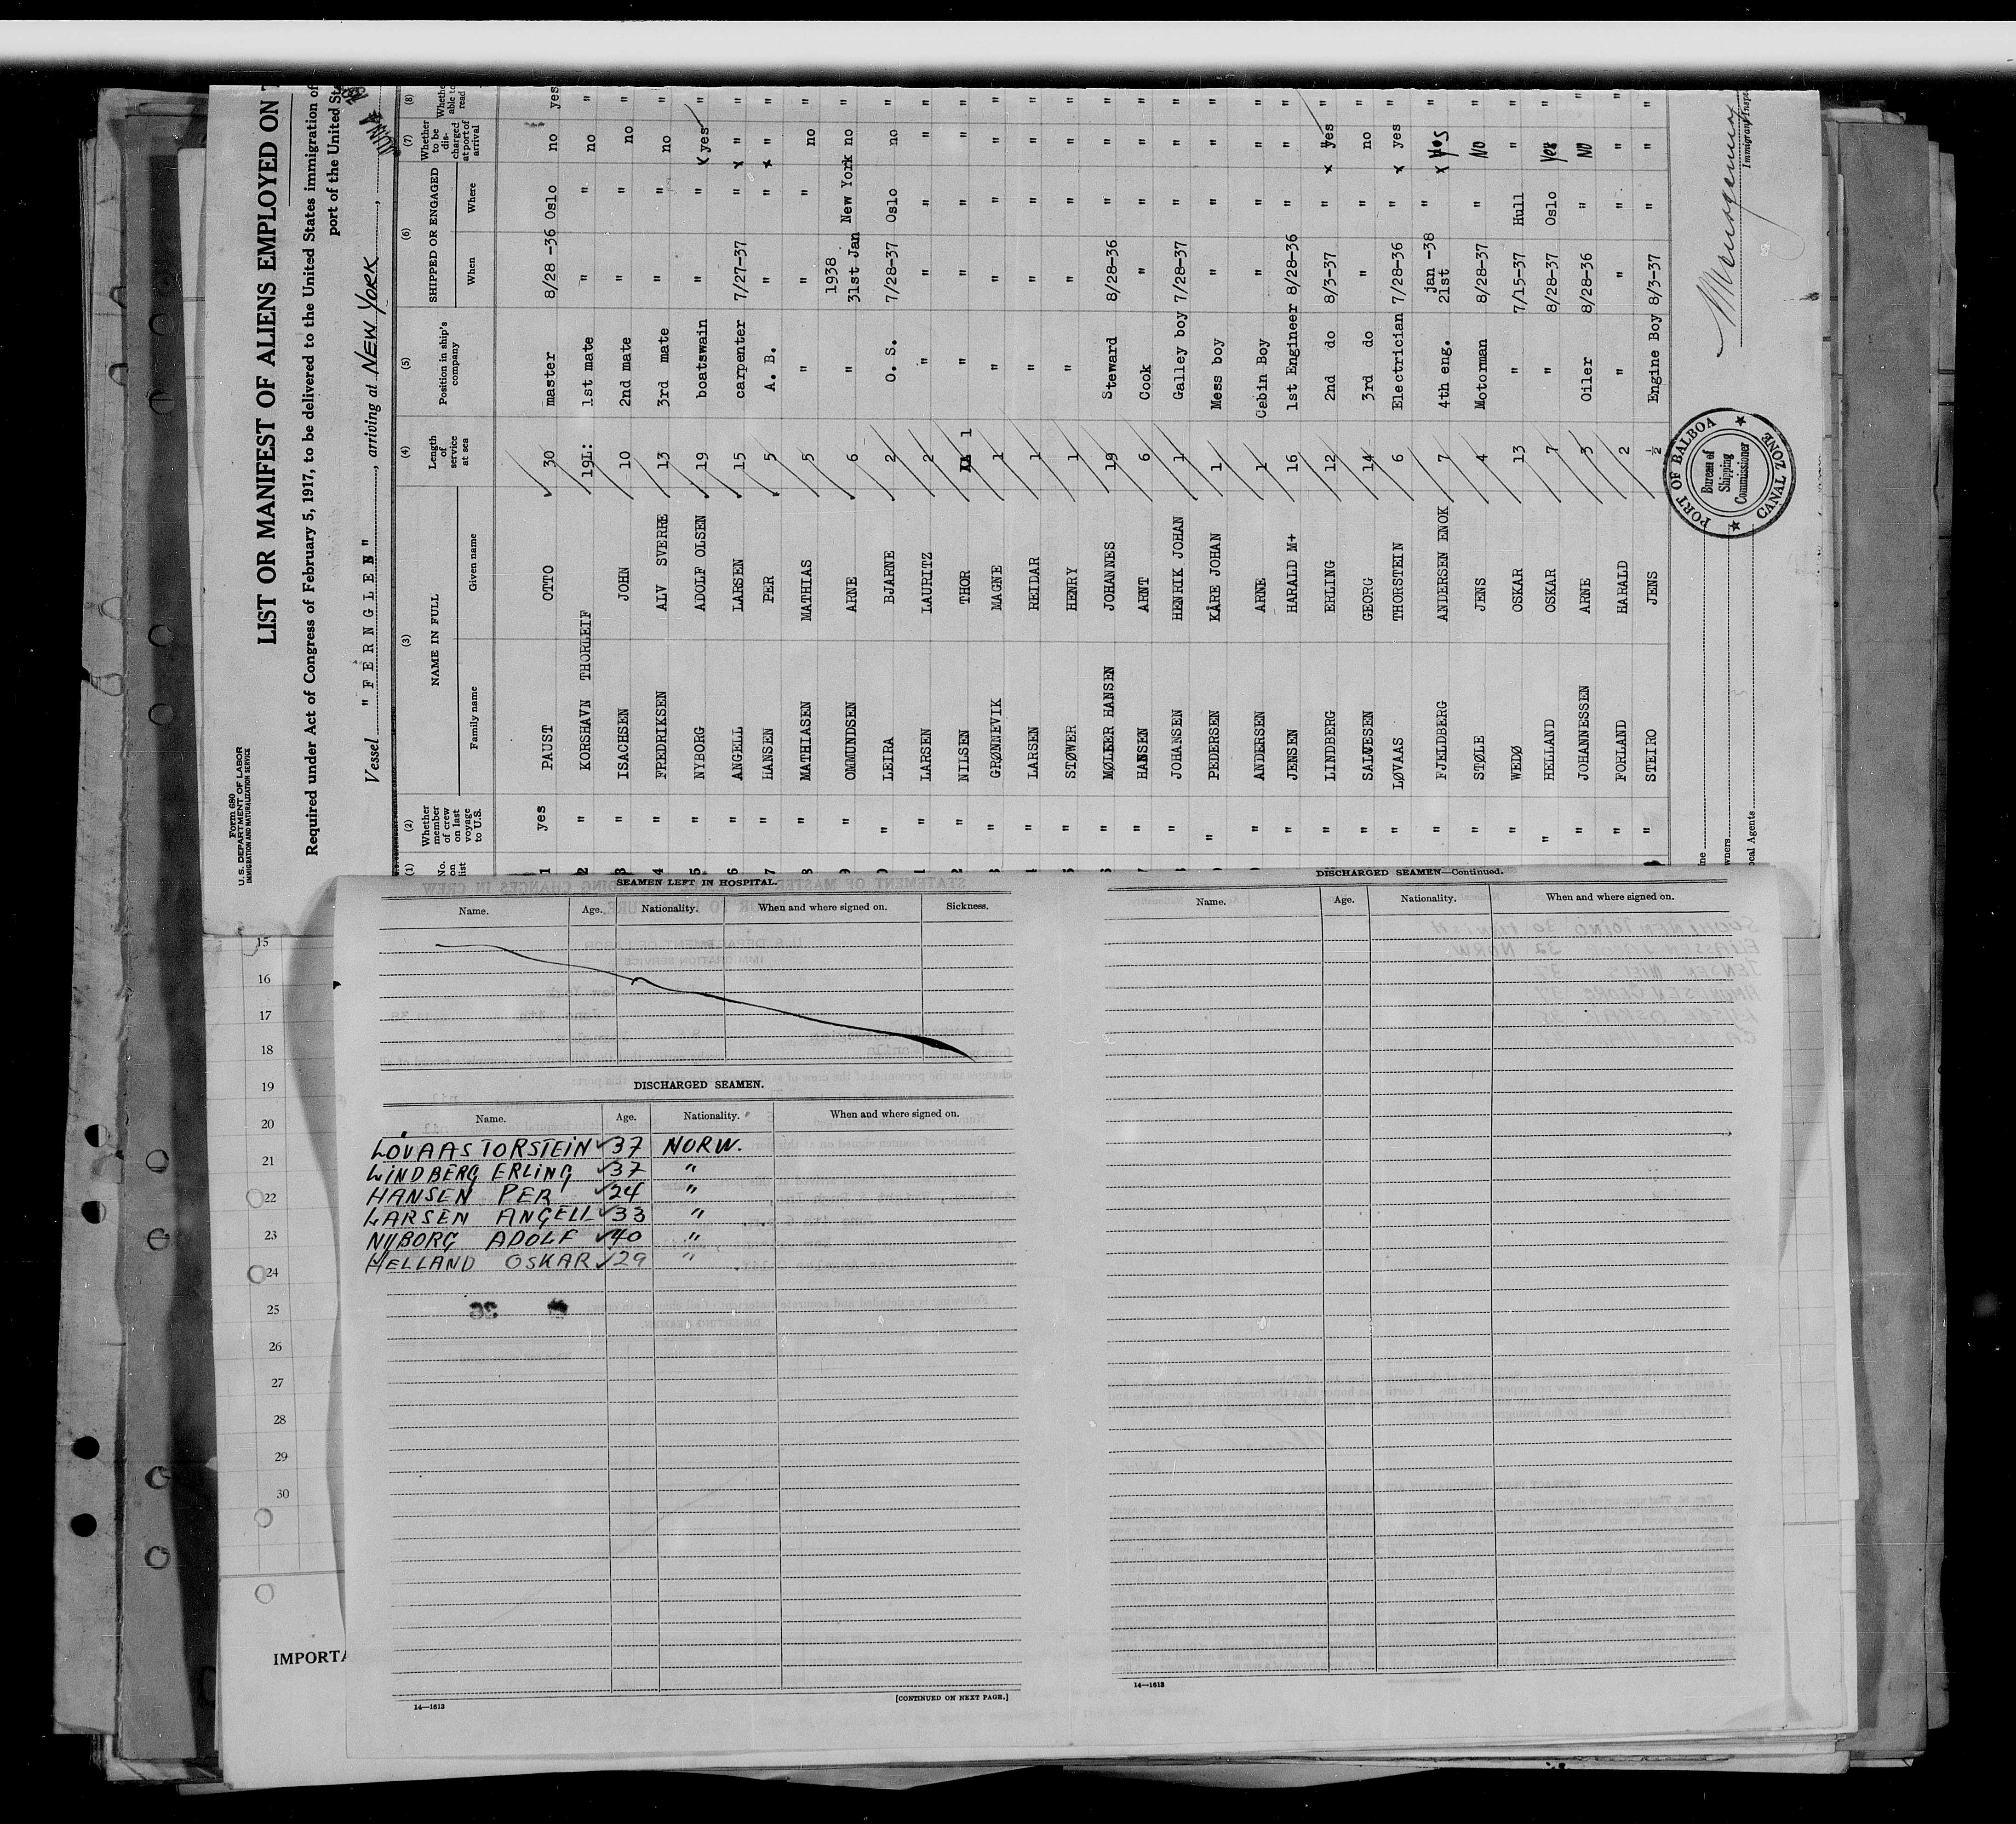 Form 680
U. S. DEPARTMENT OF LABOR
IMMIGRATION AND NATURALIZATION SERVICE
LIST OR MANIFEST OF ALIENS EMPLOYED ON
Required under Act of Congress of February 5, 1917, to be delivered to the United States immigration of
port of the United St
Vessel " F E R N G L E N ", arriving at NEW YORK,
(1) (2) (3) (4) (5) (6) (7) (8)
No. on list Whether member of crew on last voyage to U.S. NAME IN FULL Family name Given name Length of service at sea Position in ship's company SHIPPED OR ENGAGED When Where Whether to be discharged at port of arrival Whethe able to read
1 yes PAUST OTTO 30 master 8/28 -36 Oslo no yes
2 " KORSHAVN THORLEIF 19L: 1st mate " " no "
3 " ISACHSEN JOHN 10 2nd mate " " no "
4 " FREDRIKSEN ALV SVERRE 13 3rd mate " " no "
5 " NYBORG ADOLF OLSEN 19 boatswain " " x yes "
6 " ANGELL LARSEN 15 carpenter 7/27-37 " x " "
7 " HANSEN PER 5 A. B. " " x " "
8 " MATHIASEN MATHIAS 5 " " " no "
9 " OMMUNDSEN ARNE 6 " 1938 31st Jan New York no "
0 " LEIRA BJARNE 2 O. S. 7/28-37 Oslo no "
1 " LARSEN LAURITZ 2 " " " " "
2 " NILSEN THOR 1 " " " " "
3 " GRØNNEVIK MAGNE 1 " " " " "
4 " LARSEN REIDAR 1 " " " " "
5 " STØWER HENRY 1 " " " " "
6 " MØLLER HANSEN JOHANNES 19 Steward 8/28-36 " " "
7 " HANSEN ARNT 6 Cook " " " "
8 " JOHANSEN HENRIK JOHAN 1 Galley boy 7/28-37 " " "
9 " PEDERSEN KÅRE JOHAN 1 Mess boy " " " "
ANDERSEN ARNE 1 Cabin Boy " " " "
" JENSEN HARALD M+ 16 1st Engineer 8/28-36 " " "
" LINDBERG ERLING 12 2nd do 8/3-37 " x yes "
" SALVESEN GEORG 14 3rd do " " no "
" LØVAAS THORSTEIN 6 Electrician 7/28-36 " x yes "
" FJELDBERG ANDERSEN ENOK 7 4th eng. jan -38 21st " x "
" STØLE JENS 4 Motorman 8/28-37 " NO "
" WEDØ OSKAR 13 " 7/15-37 Hull " "
" HELLAND OSKAR 7 " 8/28-37 Oslo yes "
" JOHANNESSEN ARNE 3 Oiler 8/28-36 " NO "
" FORLAND HARALD 2 " " " " "
" STEIRO JENS ½ Engine Boy 8/3-37 " " "
ine
wners
ocal Agents
PORT OF BALBOA
Bureau of
Shipping
Commissioner
CANAL ZONE
Immigrant Inspe
15
16
17
18
19
20
21
22
23
24
25
26
27
28
29
30
IMPORTA
SEAMEN LEFT IN HOSPITAL.
Name. Age. Nationality. When and where signed on. Sickness.
DISCHARGED SEAMEN.
Name. Age. Nationality. When and where signed on.
LOVAAS TORSTEIN 37 NORW.
LINDBERG ERLING 37 "
HANSEN PER 24 "
LARSEN ANGELL 33 "
NYBORG ADOLF 40 "
HELLAND OSKAR 29 "
14—1613
[CONTINUED ON NEXT PAGE.]
DISCHARGED SEAMEN—Continued.
Name. Age. Nationality. When and where signed on.
14—1613